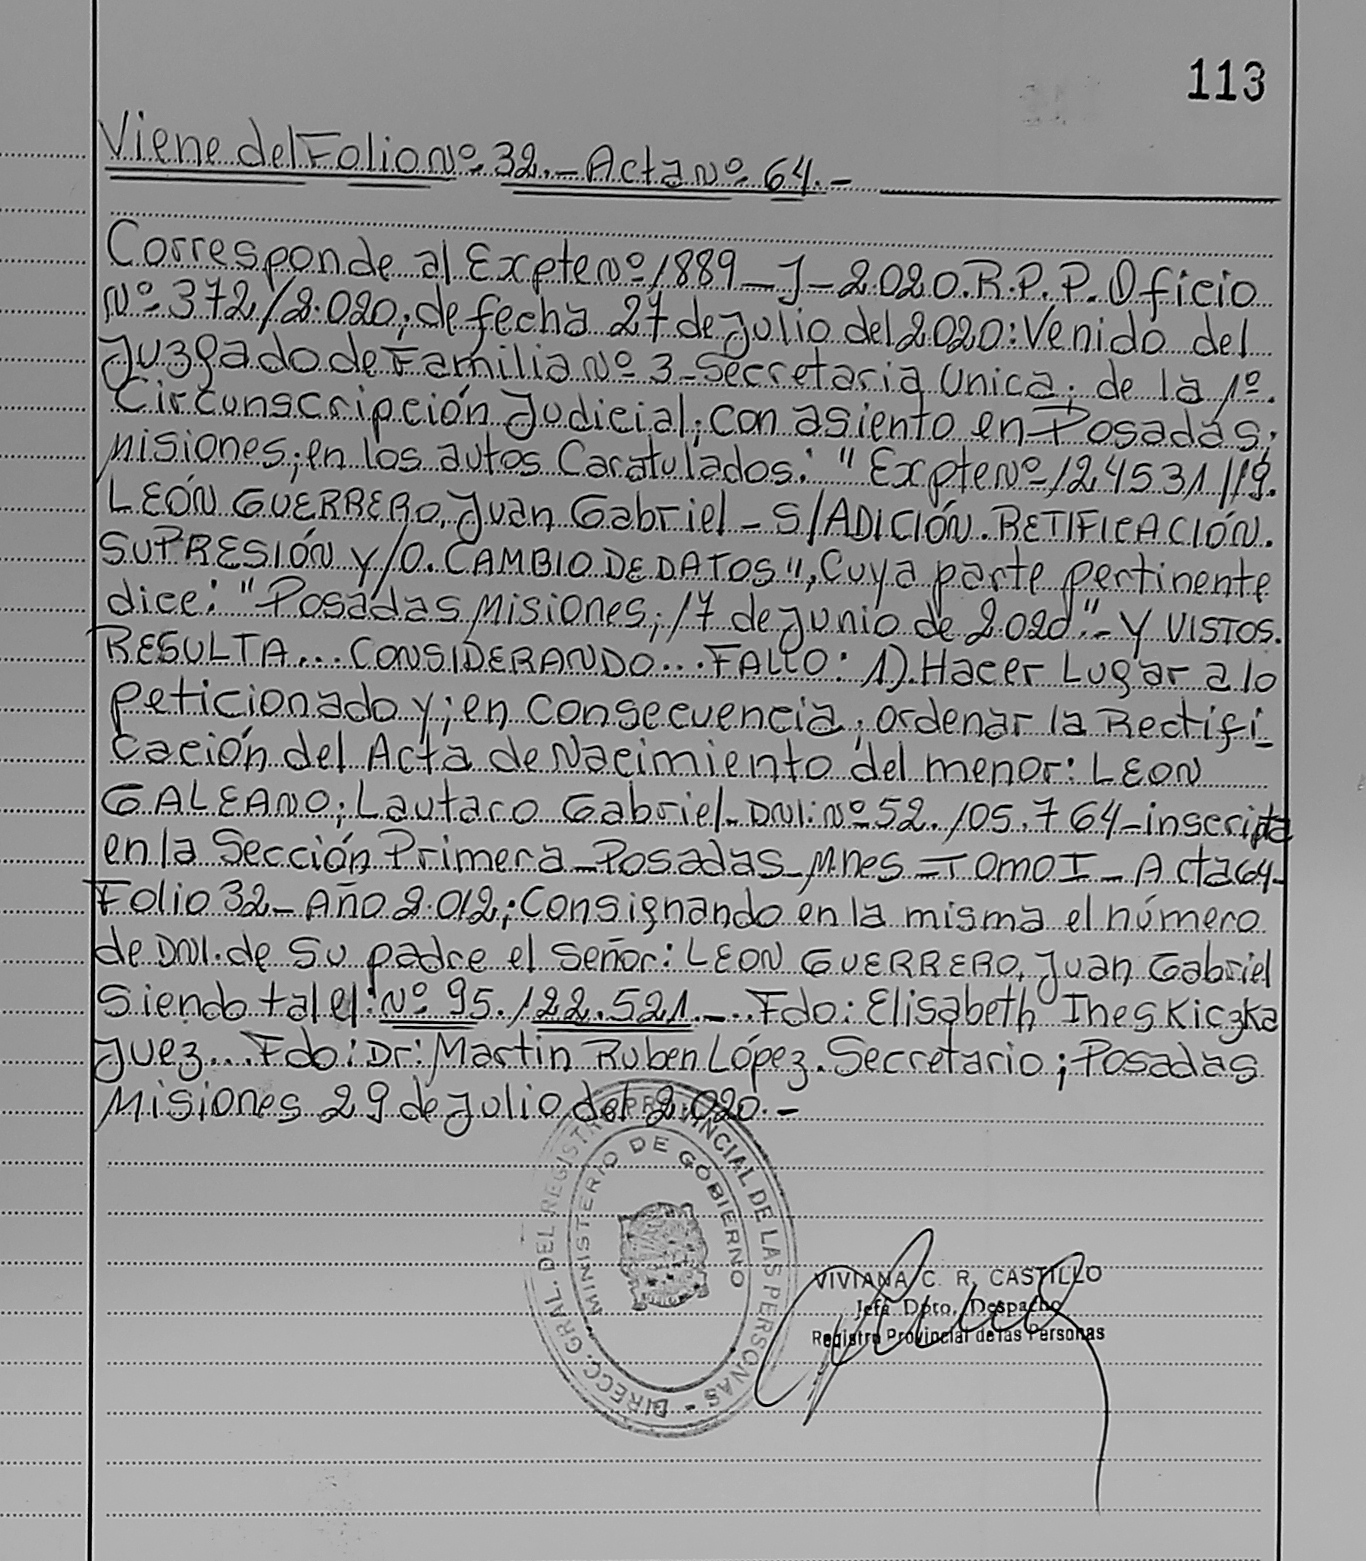 113
Viene del Folio Nº 32.- Acta Nº 64.-
Corresponde al Expte Nº 1889-J-2.020.R.P.P. Oficio
Nº 372/2.020; de fecha 27 de Julio del 2.020: Venido del
Juzgado de Familia Nº 3-Secretaria Unica; de la 1º.
Circunscripción Judicial; con asiento en Posadas;
Misiones; en los autos Caratulados: "Expte Nº 124531/19.
LEÓN GUERRERO, Juan Gabriel - S/ADICIÓN. RETIFICACIÓN.
SUPRESIÓN Y/O. CAMBIO DE DATOS", Cuya parte pertinente
dice: "Posadas Misiones; 17 de Junio de 2.020".- Y VISTOS.
RESULTA... CONSIDERANDO... FALLO: 1). Hacer Lugar a lo
peticionado y; en consecuencia; ordenar la Rectifi-
cación del Acta de Nacimiento del menor: LEON
GALEANO; Lautaro Gabriel- DNI: Nº 52.105.764-inscripta
en la Sección Primera-Posadas-Mnes=Tomo I-Acta 64-
Folio 32-Año 2.012; Consignando en la misma el número
de DNI. de su padre el señor: LEON GUERRERO, Juan Gabriel
Siendo tal el: Nº 95.122.521.-.. Fdo: Elisabeth Ines Kiczka
Juez... Fdo: Dr: Martin Ruben López. Secretario; Posadas
Misiones 29 de Julio del 2.020.-
DIRECC. GRAL. DEL REGISTRO PROVINCIAL DE LAS PERSONAS -
MINISTERIO DE GOBIERNO
VIVIANA C. R. CASTILLO
Jefa Dpto. Despacho
Registro Provincial de las Personas